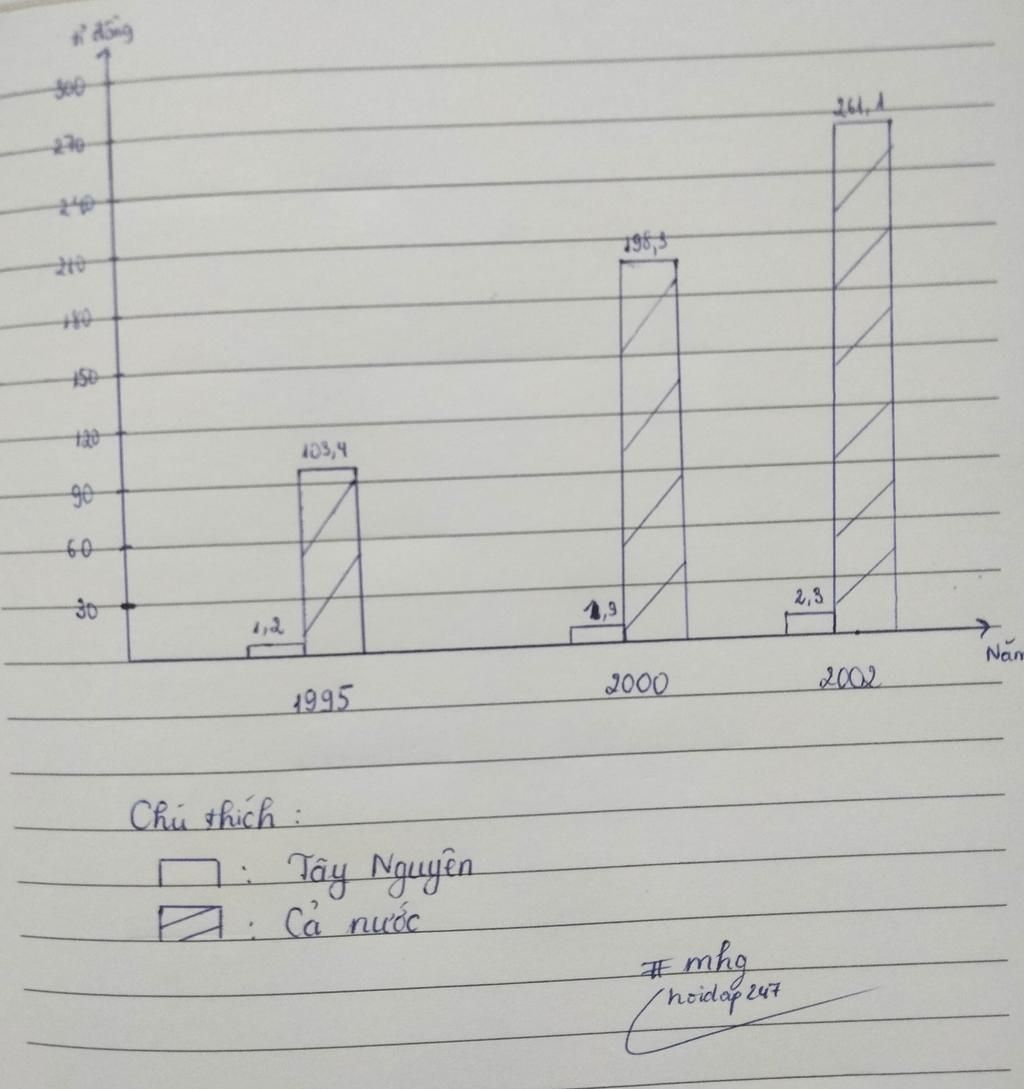 tỉ đồng
300
270
240
210
180
150
120
90
60
30
103,4
198,3
261,1
1,2
1,9
2,3
Năm
1995
2000
2002
Chú thích :
: Tây Nguyên
: Cả nước
# mhg
hoidap247